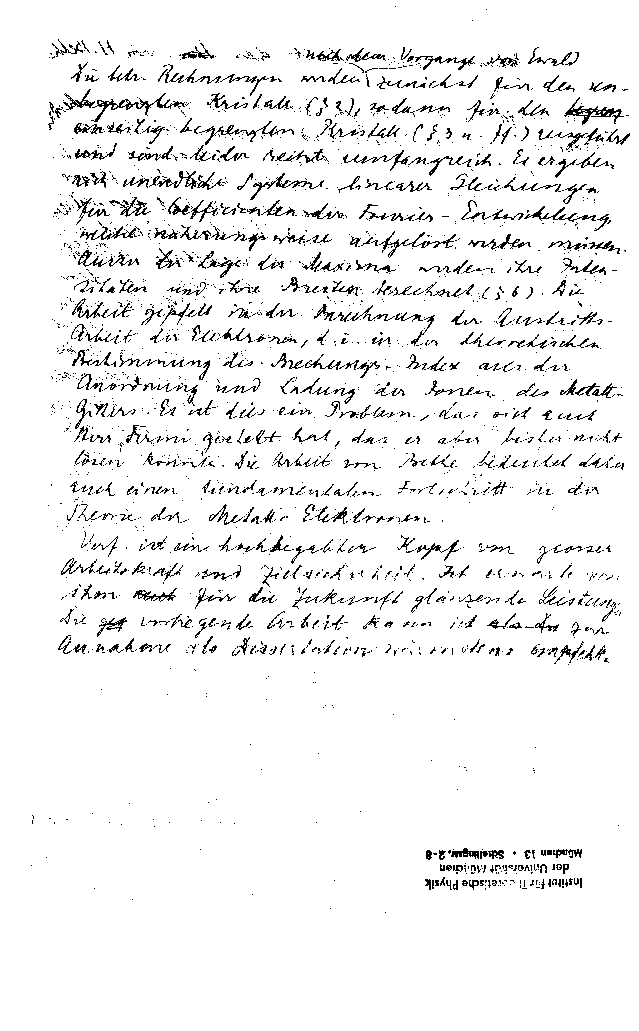 nach dem Vorgange von Ewald
Die betr. Rechnungen werden zunächst für den un-
begrenzten Kristall (§ 2), sodann für den begren
einseitig begrenzten Kristall (§ 3 u. ff.) ausgeführt
und sind leider recht umfangreich. Es ergeben
sich unendliche Systeme linearer Gleichungen
für die Coefficienten der Fourier-Entwickelung,
welche näherungsweise aufgelöst werden müssen
Ausser der Lage der Maxima werden ihre Inten-
sitäten und ihre Breiten berechnet (§ 6). Die
Arbeit gipfelt in der Berechnung der Austritts-
Arbeit der Elektronen, d. i. in der theoretischen
Bestimmung des Brechungs-Index aus der
Anordnung und Ladung der Ionen des Metall-
Gitters. Es ist dies ein Problem, das sich auch
Herr Fermi gestellt hat, das er aber bisher nicht
lösen konnte. Die Arbeit von Bethe bedeutet daher
auch einen fundamentalen Fortschritt in der
Theorie der Metall-Elektronen.
Verf. ist ein hochbegabter Kopf von grosser
Arbeitskraft und Zielsicherheit. Ich erwarte von
ihm auch für die Zukunft glänzende Leistung.
Die vorliegende Arbeit kann ich als Di zur
Annahme als Dissertation wärmstens empfehl.
Institut für Theoretische Physik
der Universität München
München 13 · Schellingstr. 2-8